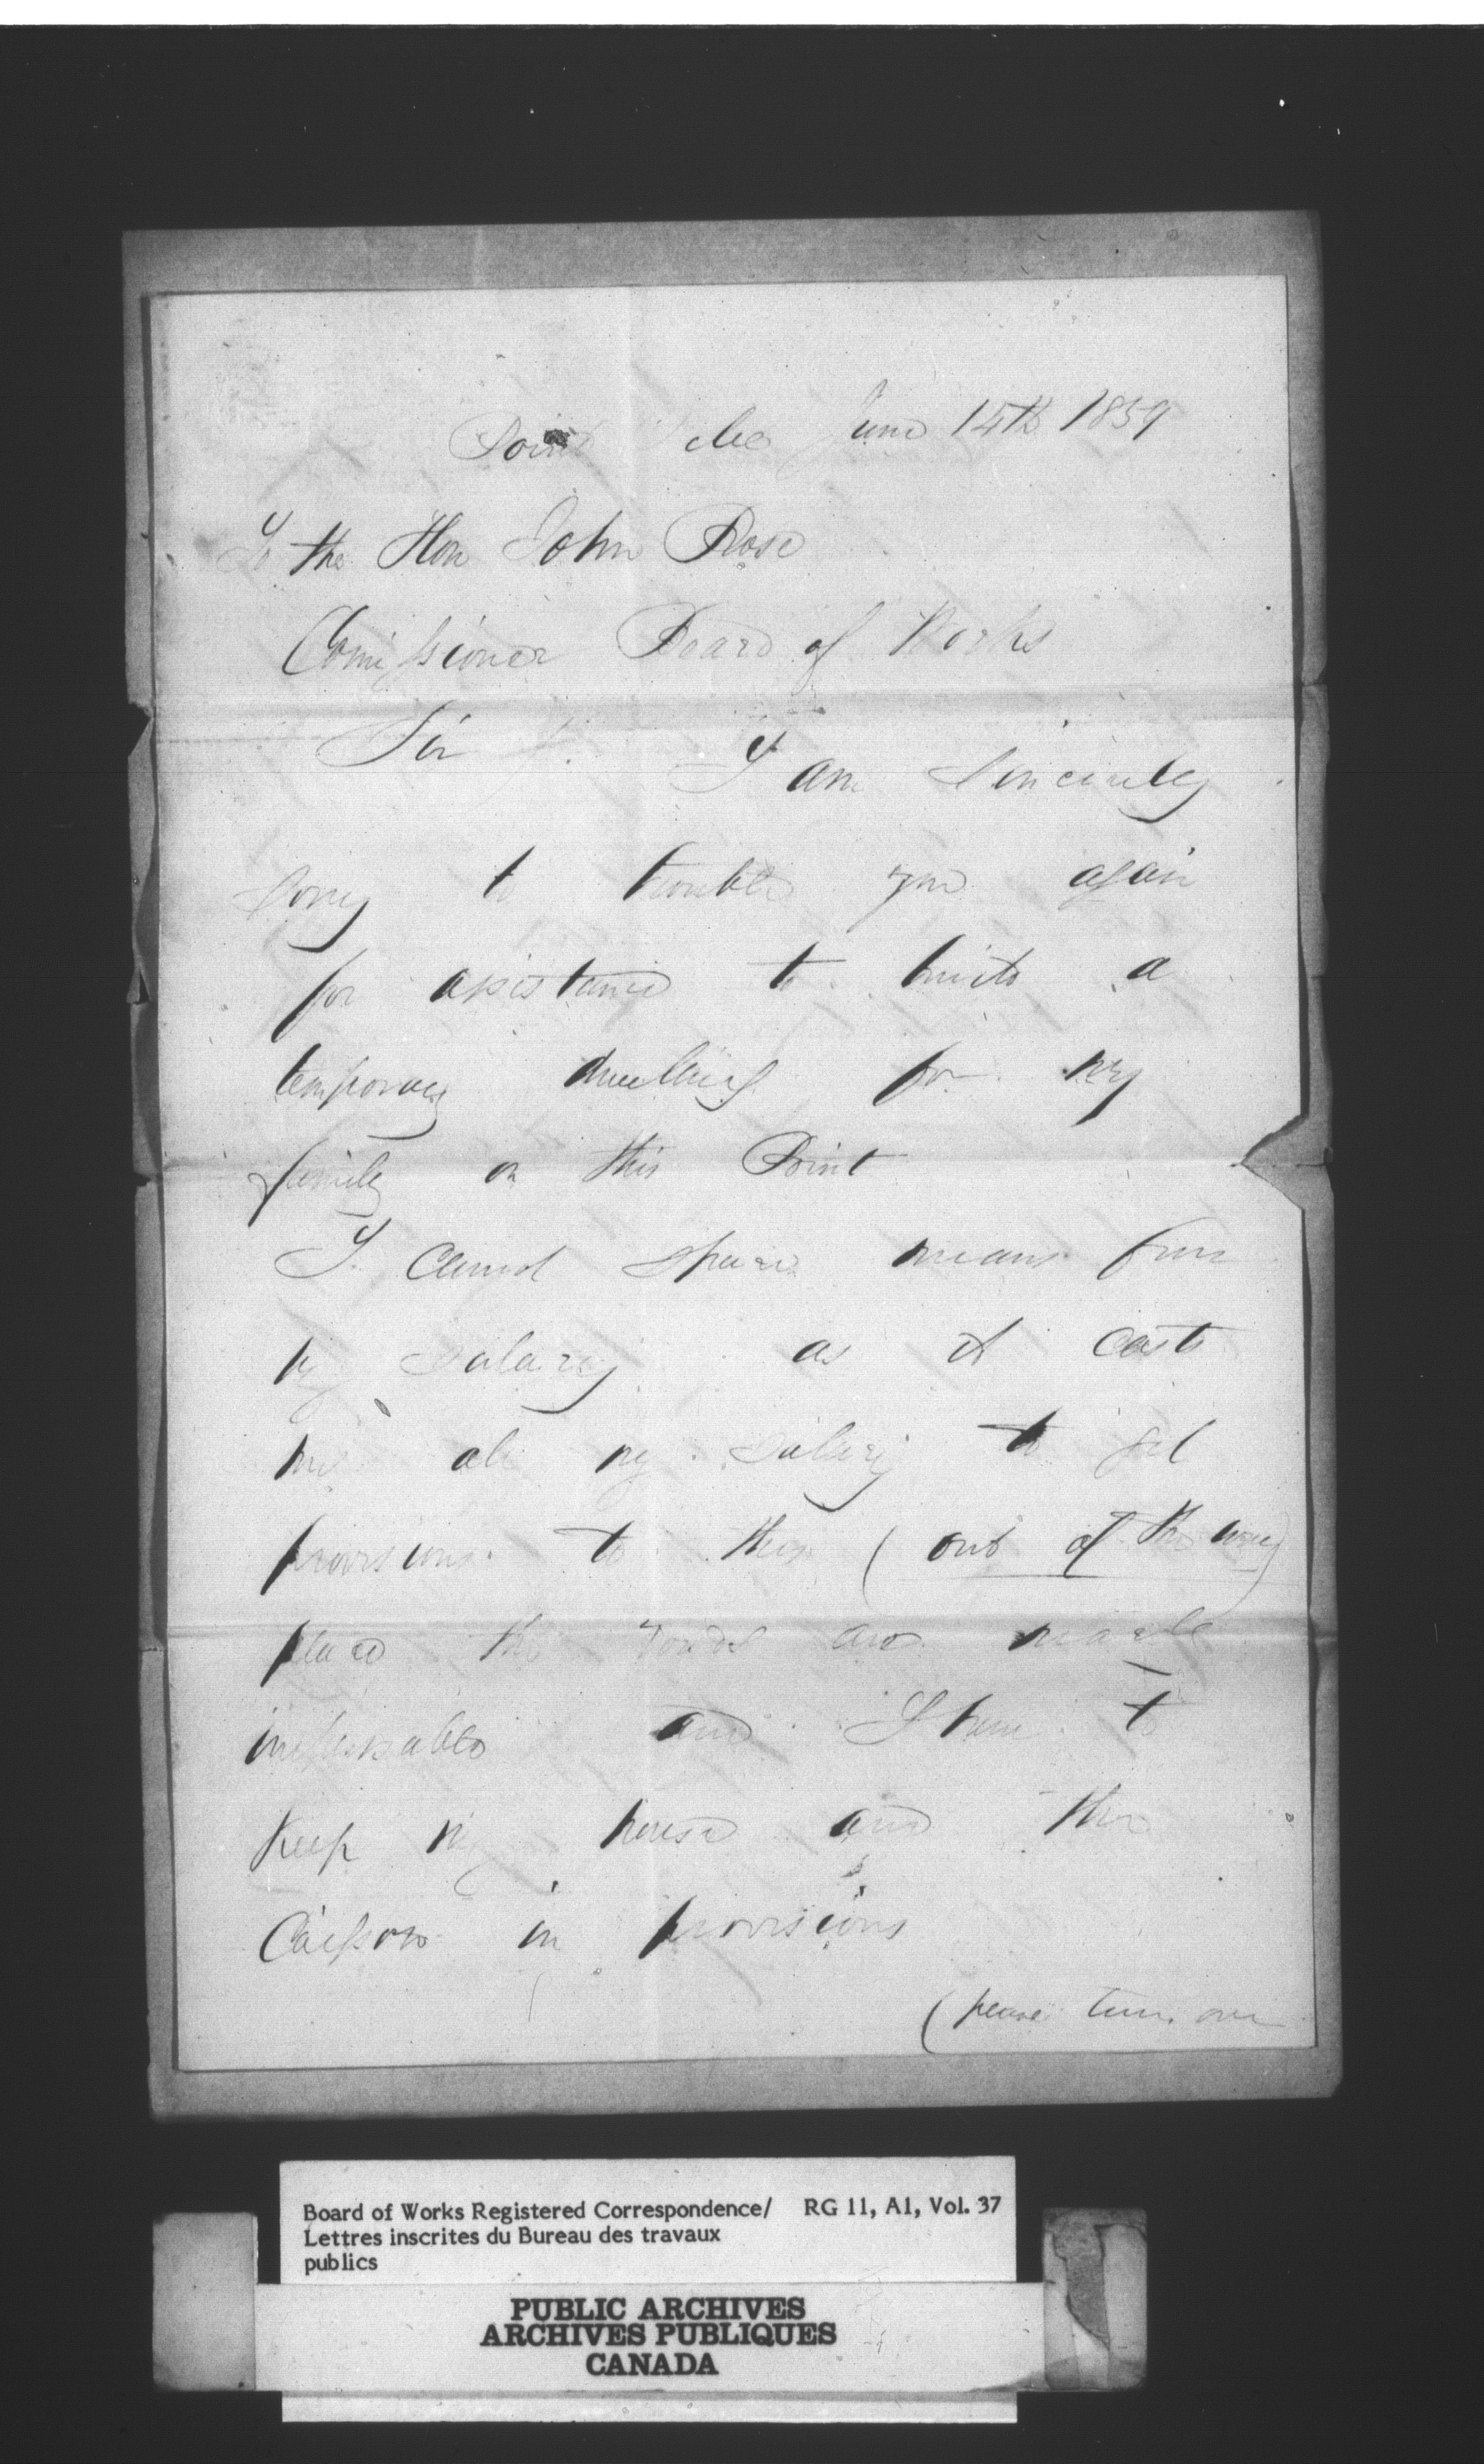 Point Pelee June 15th 1859
To the Hon John Rose
Comissioner Board of Works
Sir
I am Sincerely
Sorry to trouble you again
for asistance to build a
temporary dwelling for my
family on this Point
I Cannot Spare means from
my Salary as it Costs
me all my Salary to get
provisions to this (out of the way)
place the roads are nearly
impassable and I have to
Keep my house and the
Caisson in provisions
(please turn over
Board of Works Registered Correspondence/ RG 11, A1, Vol. 37
Lettres inscrites du Bureau des travaux
publics
PUBLIC ARCHIVES
ARCHIVES PUBLIQUES
CANADA